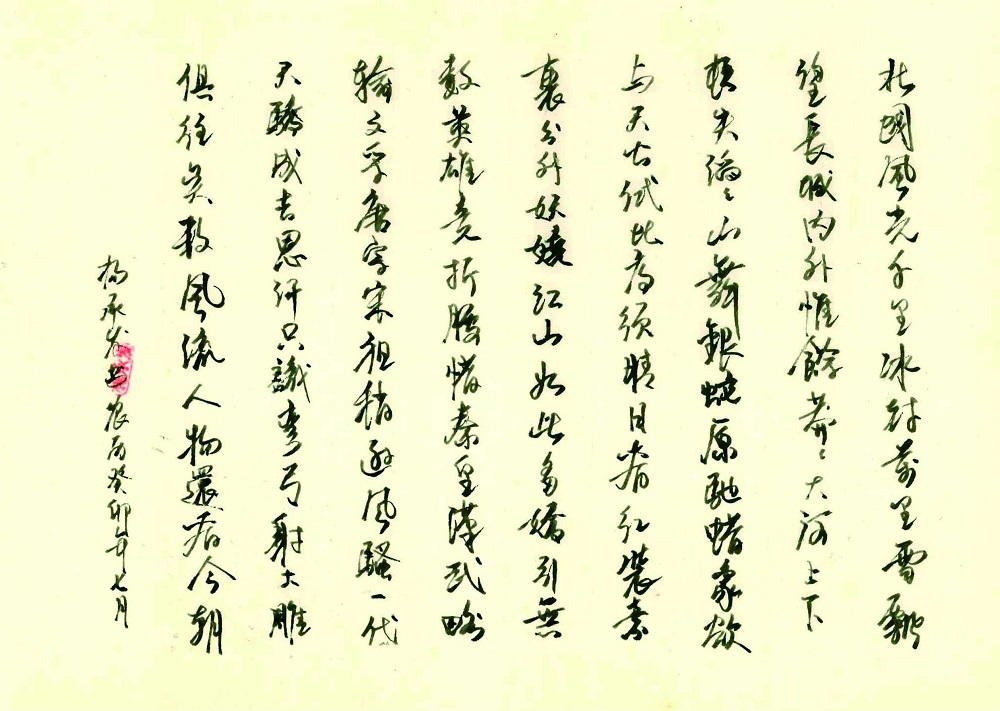 北國風光千里冰封萬里雪飄
望長城内外惟餘莽〻大河上下
頓失滔〻山舞銀蛇原馳蜡象欲
与天公试比高须晴日看红裝素
裹分外妖嬈江山如此多嬌引無
數英雄竞折腰惜秦皇漢武略
輸文采唐宗宋祖稍逊風騷一代
天驕成吉思汗只識彎弓射大雕
俱往矣数風流人物還看今朝
楊承书农历癸卯年七月